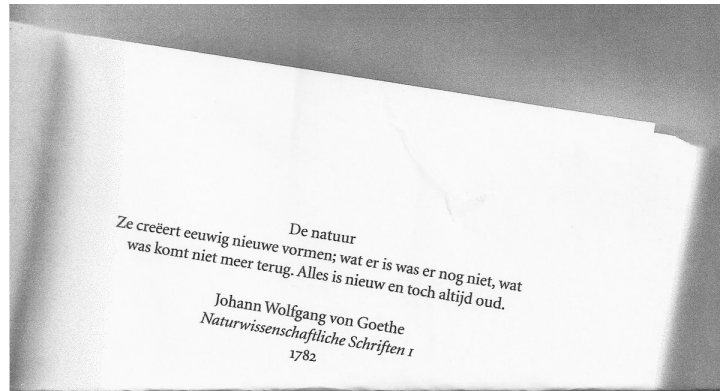 De natuur
Ze creëert eeuwig nieuwe vormen; wat er is was er nog niet, wat
was komt niet meer terug. Alles is nieuw en toch altijd oud.
Johann Wolfgang von Goethe
Naturwissenschaftliche Schriften I
1782